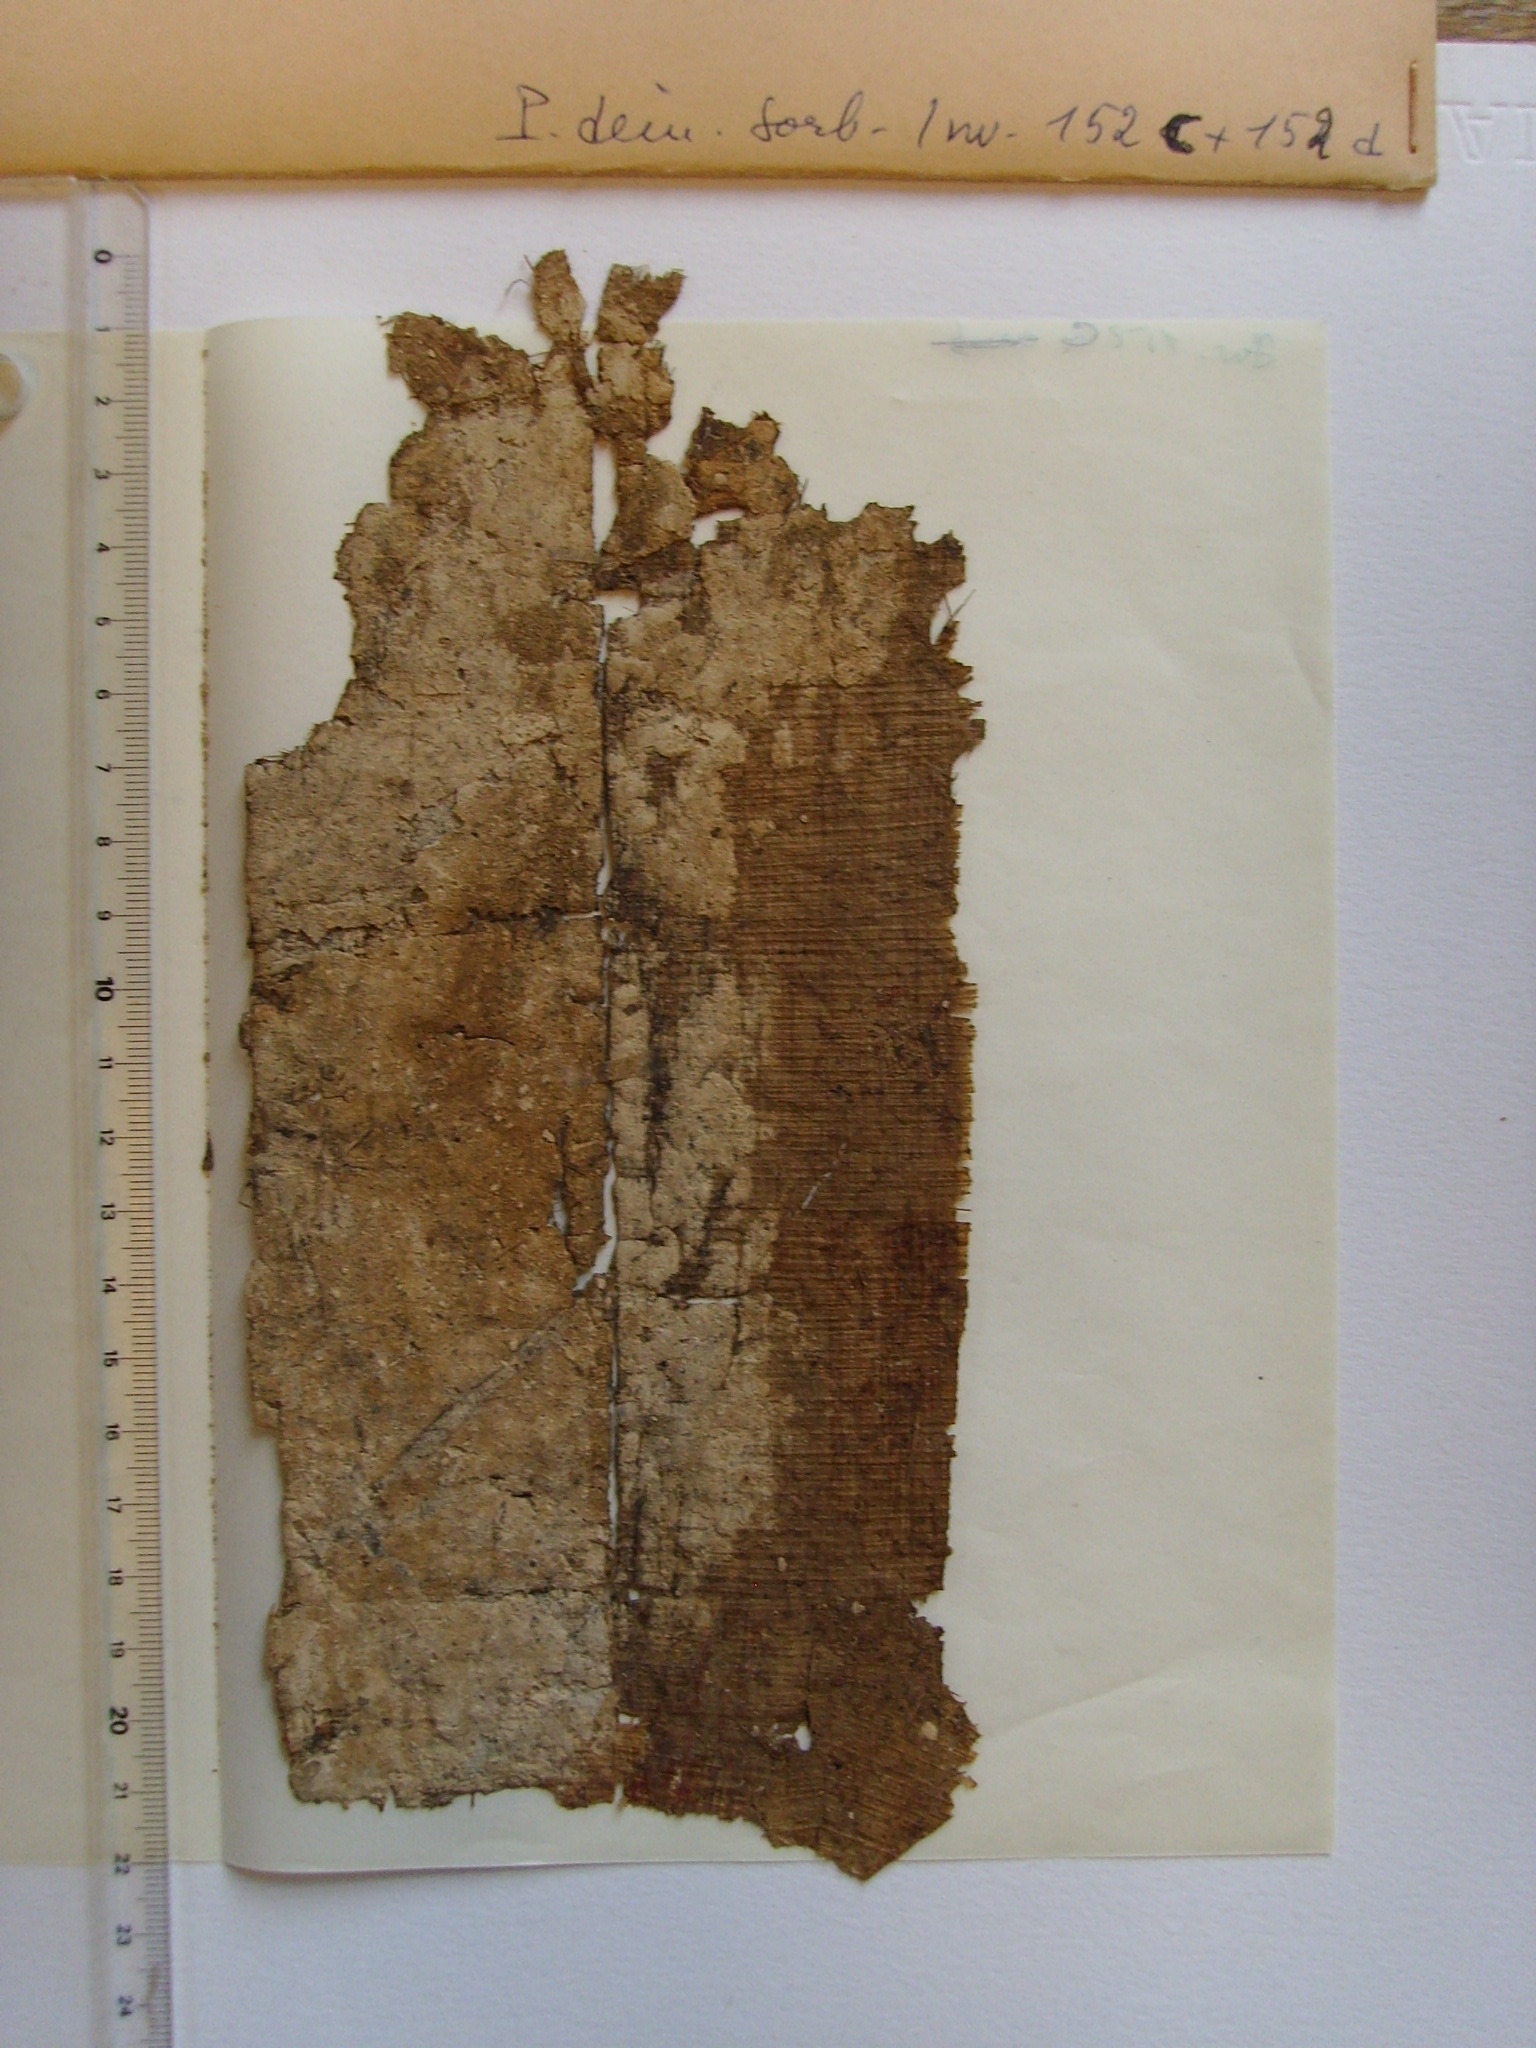 P. dem. Sorb. Inv. 152 c + 152 d
0
1
2
3
4
5
6
7
8
9
10
11
12
13
14
15
16
17
18
19
20
21
22
23
24